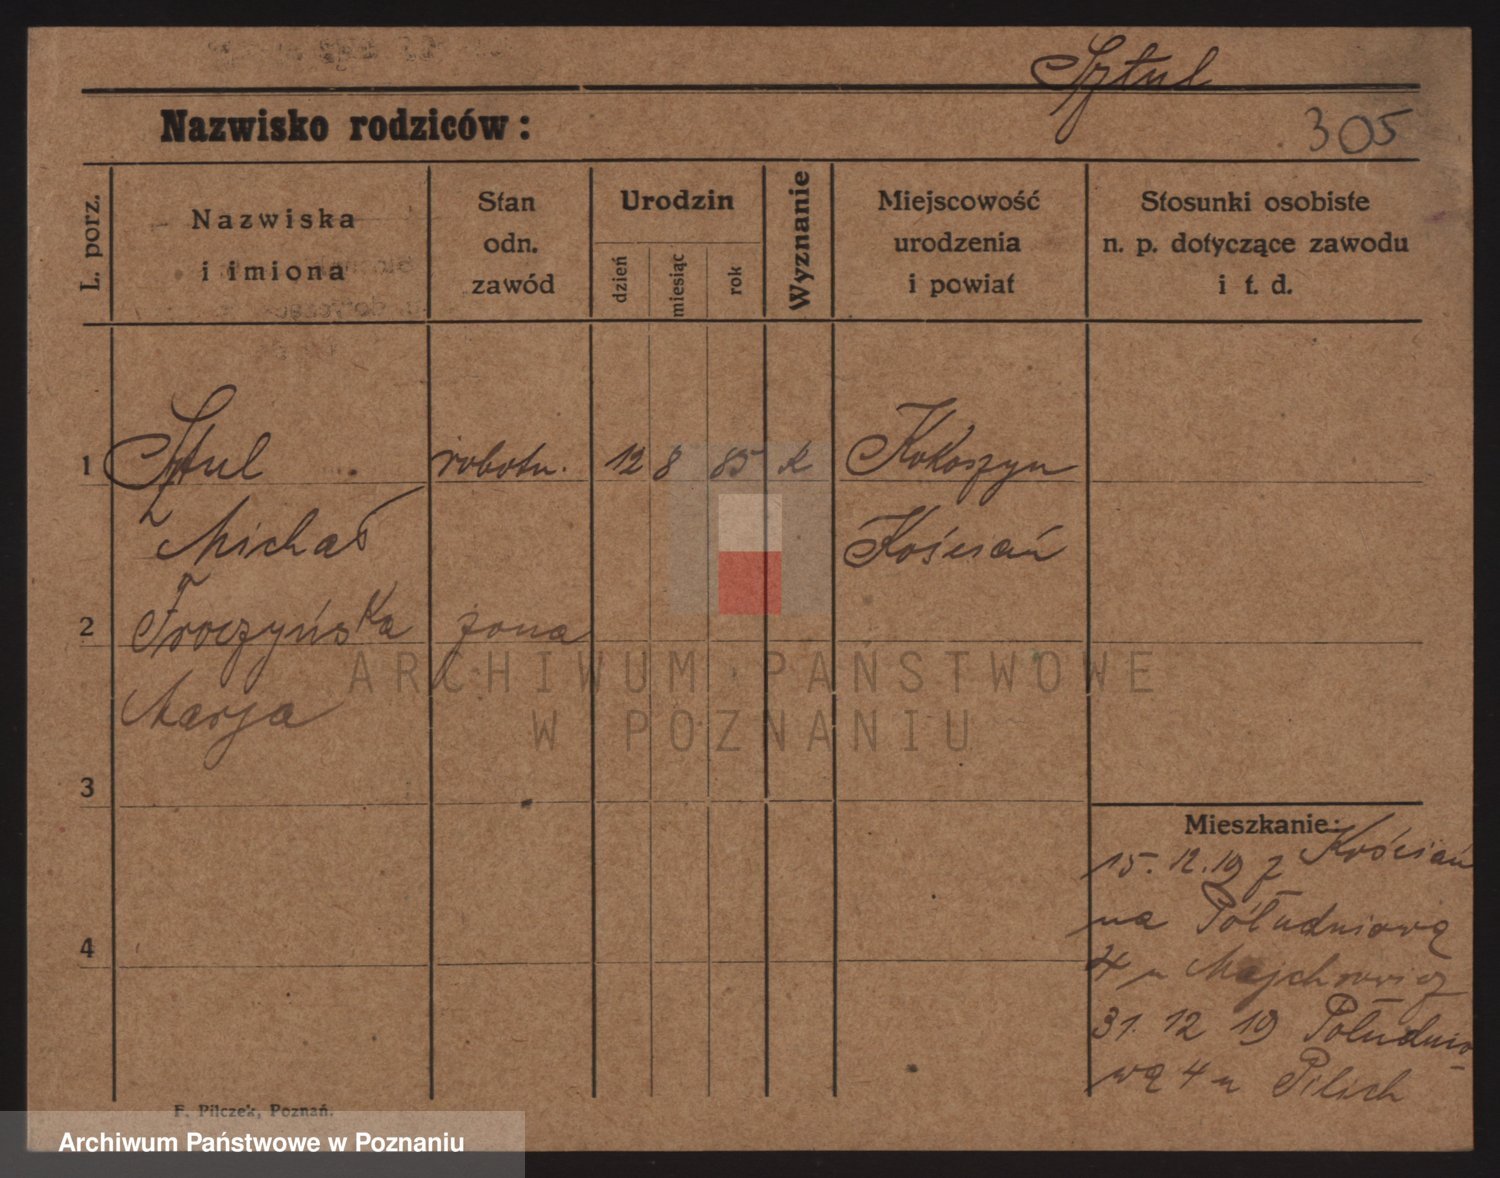 Sztul
Nazwisko rodziców:
305
L. porz.
Nazwiska
i imiona
Stan
odn.
zawód
Urodzin
dzień
miesiąc
rok
Wyznanie
Miejscowość
urodzenia
i powiat
Stosunki osobiste
n. p. dotyczące zawodu
i t. d.
1 Sztul robotn. 12 8 85 k Kokoszyn
Michał Kościan
2 Froczyńska żona
Marja
3
Mieszkanie:
15. 12. 19 z Kościan
na Południową
4
4 u Majchrowicz
31. 12 19 Południo-
wą 4 u Pilich
F. Pilczek, Poznań.
ARCHIWUM PAŃSTWOWE
W POZNANIU
Archiwum Państwowe w Poznaniu